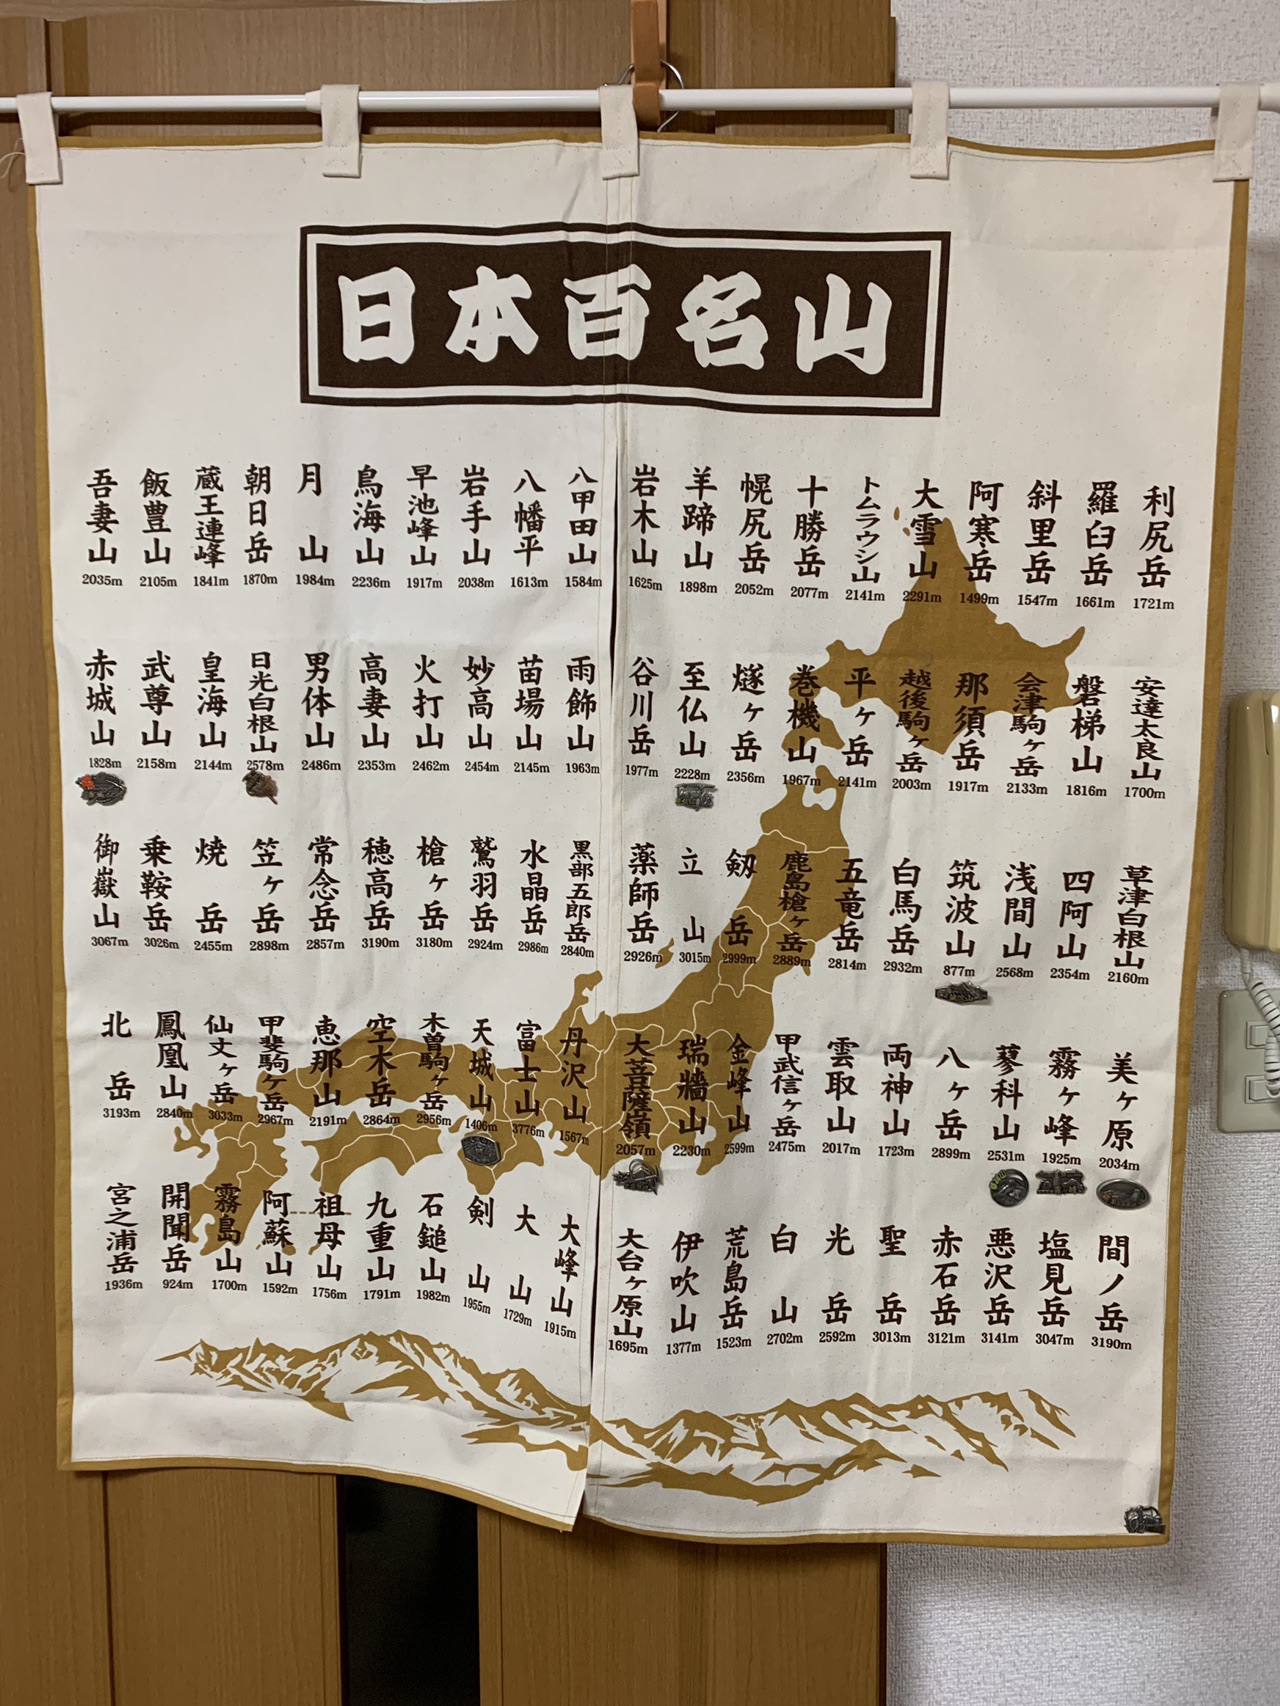 日本百名山
利尻岳
1721m
羅臼岳
1661m
斜里岳
1547m
阿寒岳
1499m
大雪山
2291m
トムラウシ山
2141m
十勝岳
2077m
幌尻岳
2052m
羊蹄山
1898m
岩木山
1625m
八甲田山
1584m
八幡平
1613m
岩手山
2038m
早池峰山
1917m
鳥海山
2236m
月山
1984m
朝日岳
1870m
蔵王連峰
1841m
飯豊山
2105m
吾妻山
2035m
安達太良山
1700m
磐梯山
1816m
会津駒ヶ岳
2133m
那須岳
1917m
越後駒ヶ岳
2003m
平ヶ岳
2141m
巻機山
1967m
燧ヶ岳
2356m
至仏山
2228m
谷川岳
1977m
雨飾山
1963m
苗場山
2145m
妙高山
2454m
火打山
2462m
高妻山
2353m
男体山
2486m
日光白根山
2578m
皇海山
2144m
武尊山
2158m
赤城山
1828m
草津白根山
2160m
四阿山
2354m
浅間山
2568m
筑波山
877m
白馬岳
2932m
五竜岳
2814m
鹿島槍ヶ岳
2889m
剱岳
2999m
立山
3015m
薬師岳
2926m
黒部五郎岳
2840m
水晶岳
2986m
鷲羽岳
2924m
槍ヶ岳
3180m
穂高岳
3190m
常念岳
2857m
笠ヶ岳
2898m
焼岳
2455m
乗鞍岳
3026m
御嶽山
3067m
美ヶ原
2034m
霧ヶ峰
1925m
蓼科山
2531m
八ヶ岳
2899m
両神山
1723m
雲取山
2017m
甲武信ヶ岳
2475m
金峰山
2599m
瑞牆山
2230m
大菩薩嶺
2057m
丹沢山
1567m
富士山
3776m
天城山
1406m
木曽駒ヶ岳
2956m
空木岳
2864m
恵那山
2191m
甲斐駒ヶ岳
2967m
仙丈ヶ岳
3033m
鳳凰山
2840m
北岳
3193m
間ノ岳
3190m
塩見岳
3047m
悪沢岳
3141m
赤石岳
3121m
聖岳
3013m
光岳
2592m
白山
2702m
荒島岳
1523m
伊吹山
1377m
大台ヶ原山
1695m
大峰山
1915m
大山
1729m
剣山
1955m
石鎚山
1982m
九重山
1791m
祖母山
1756m
阿蘇山
1592m
霧島山
1700m
開聞岳
924m
宮之浦岳
1936m